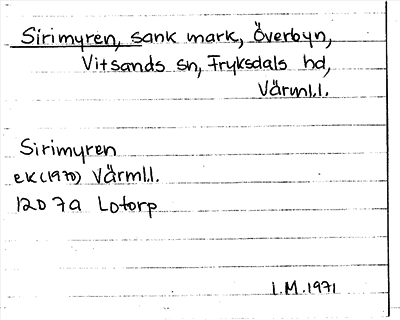 Sirimyren, sank mark, Överbyn,
Vitsands sn, Fryksdals hd,
Värml.l.
Sirimyren
ek(1970) Värml.l.
12D 7a Lotorp
I.M.1971